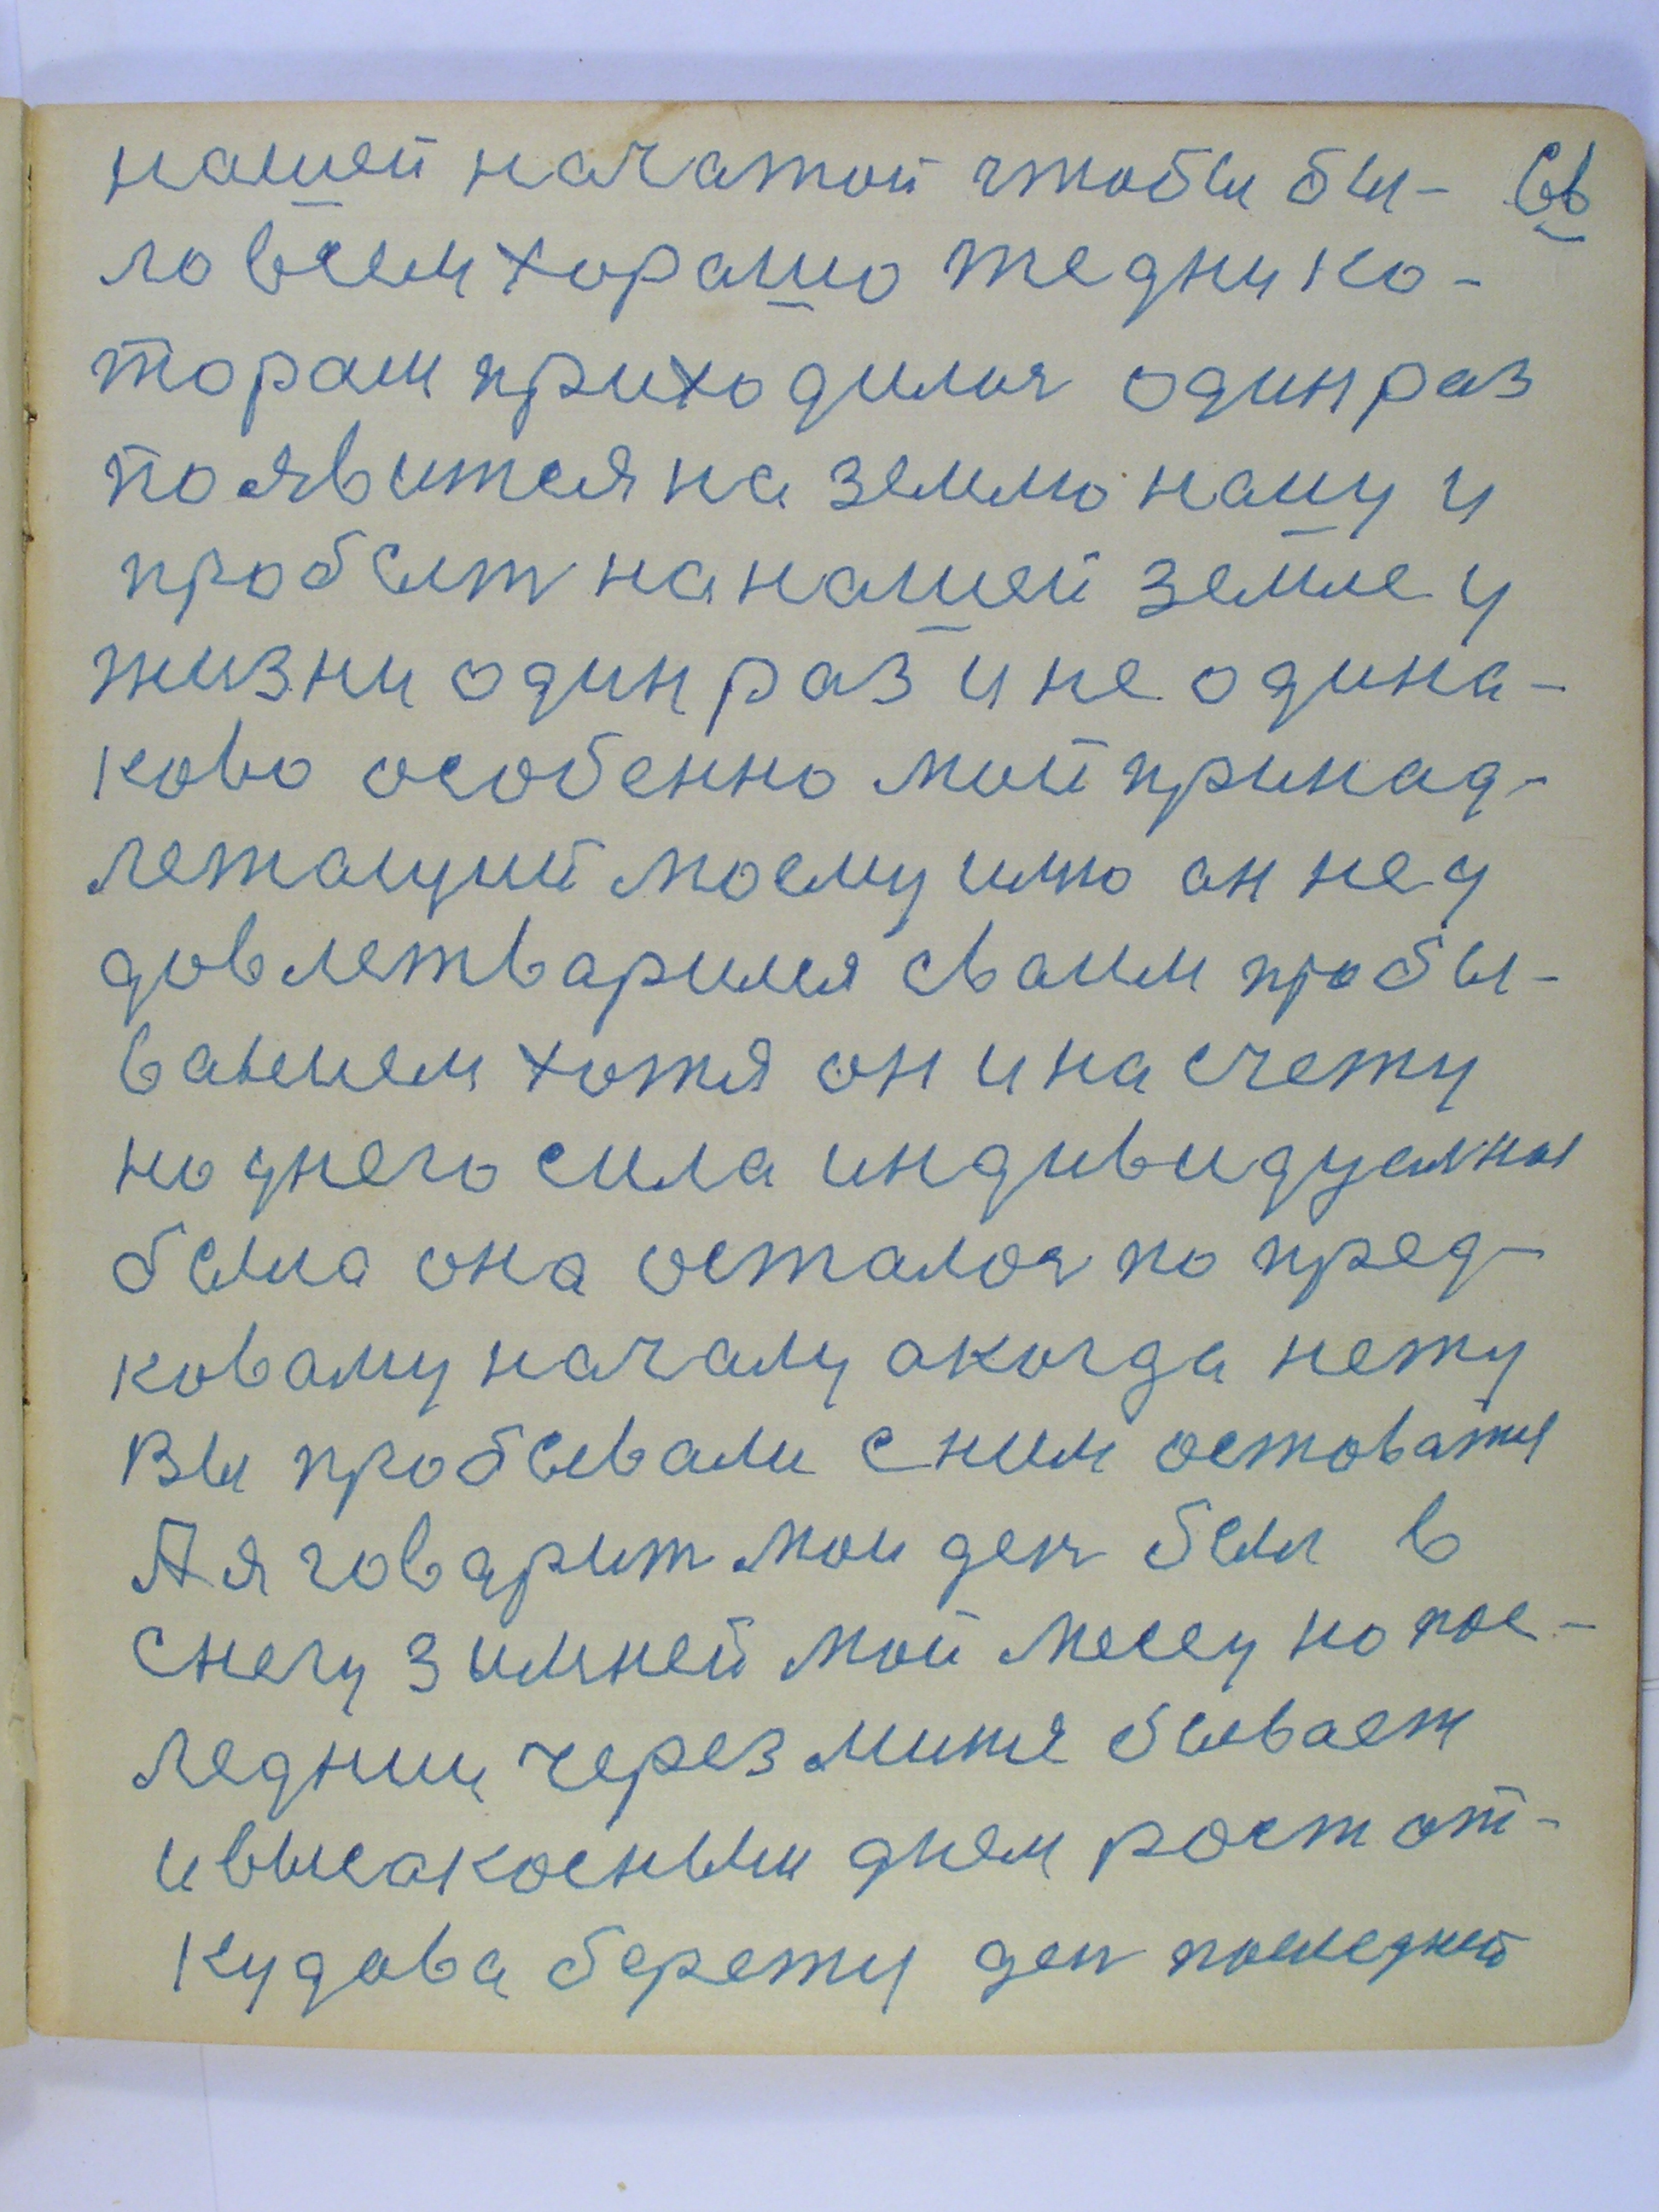 нашей начатой чтобы бы-
ло всем хорашо те дни ко-
торам приходилоя один раз
появится на землю нашу и
пробыт на нашей земле у
жизни один раз и не одина-
ково особенно мой принад-
лежащий моему имю он не у
довлетварился сваим прабы-
ванием хотя он и на счету
но у него сила индивидуалная
была она осталоя по пред-
коваму началу а когда нету
Вы пробывали с ним остоватия
А я говарит мои ден был в
снегу зимней мой месец но пос-
ледний через бывает
и высакосным днем рост от-
кудова берету ден последней